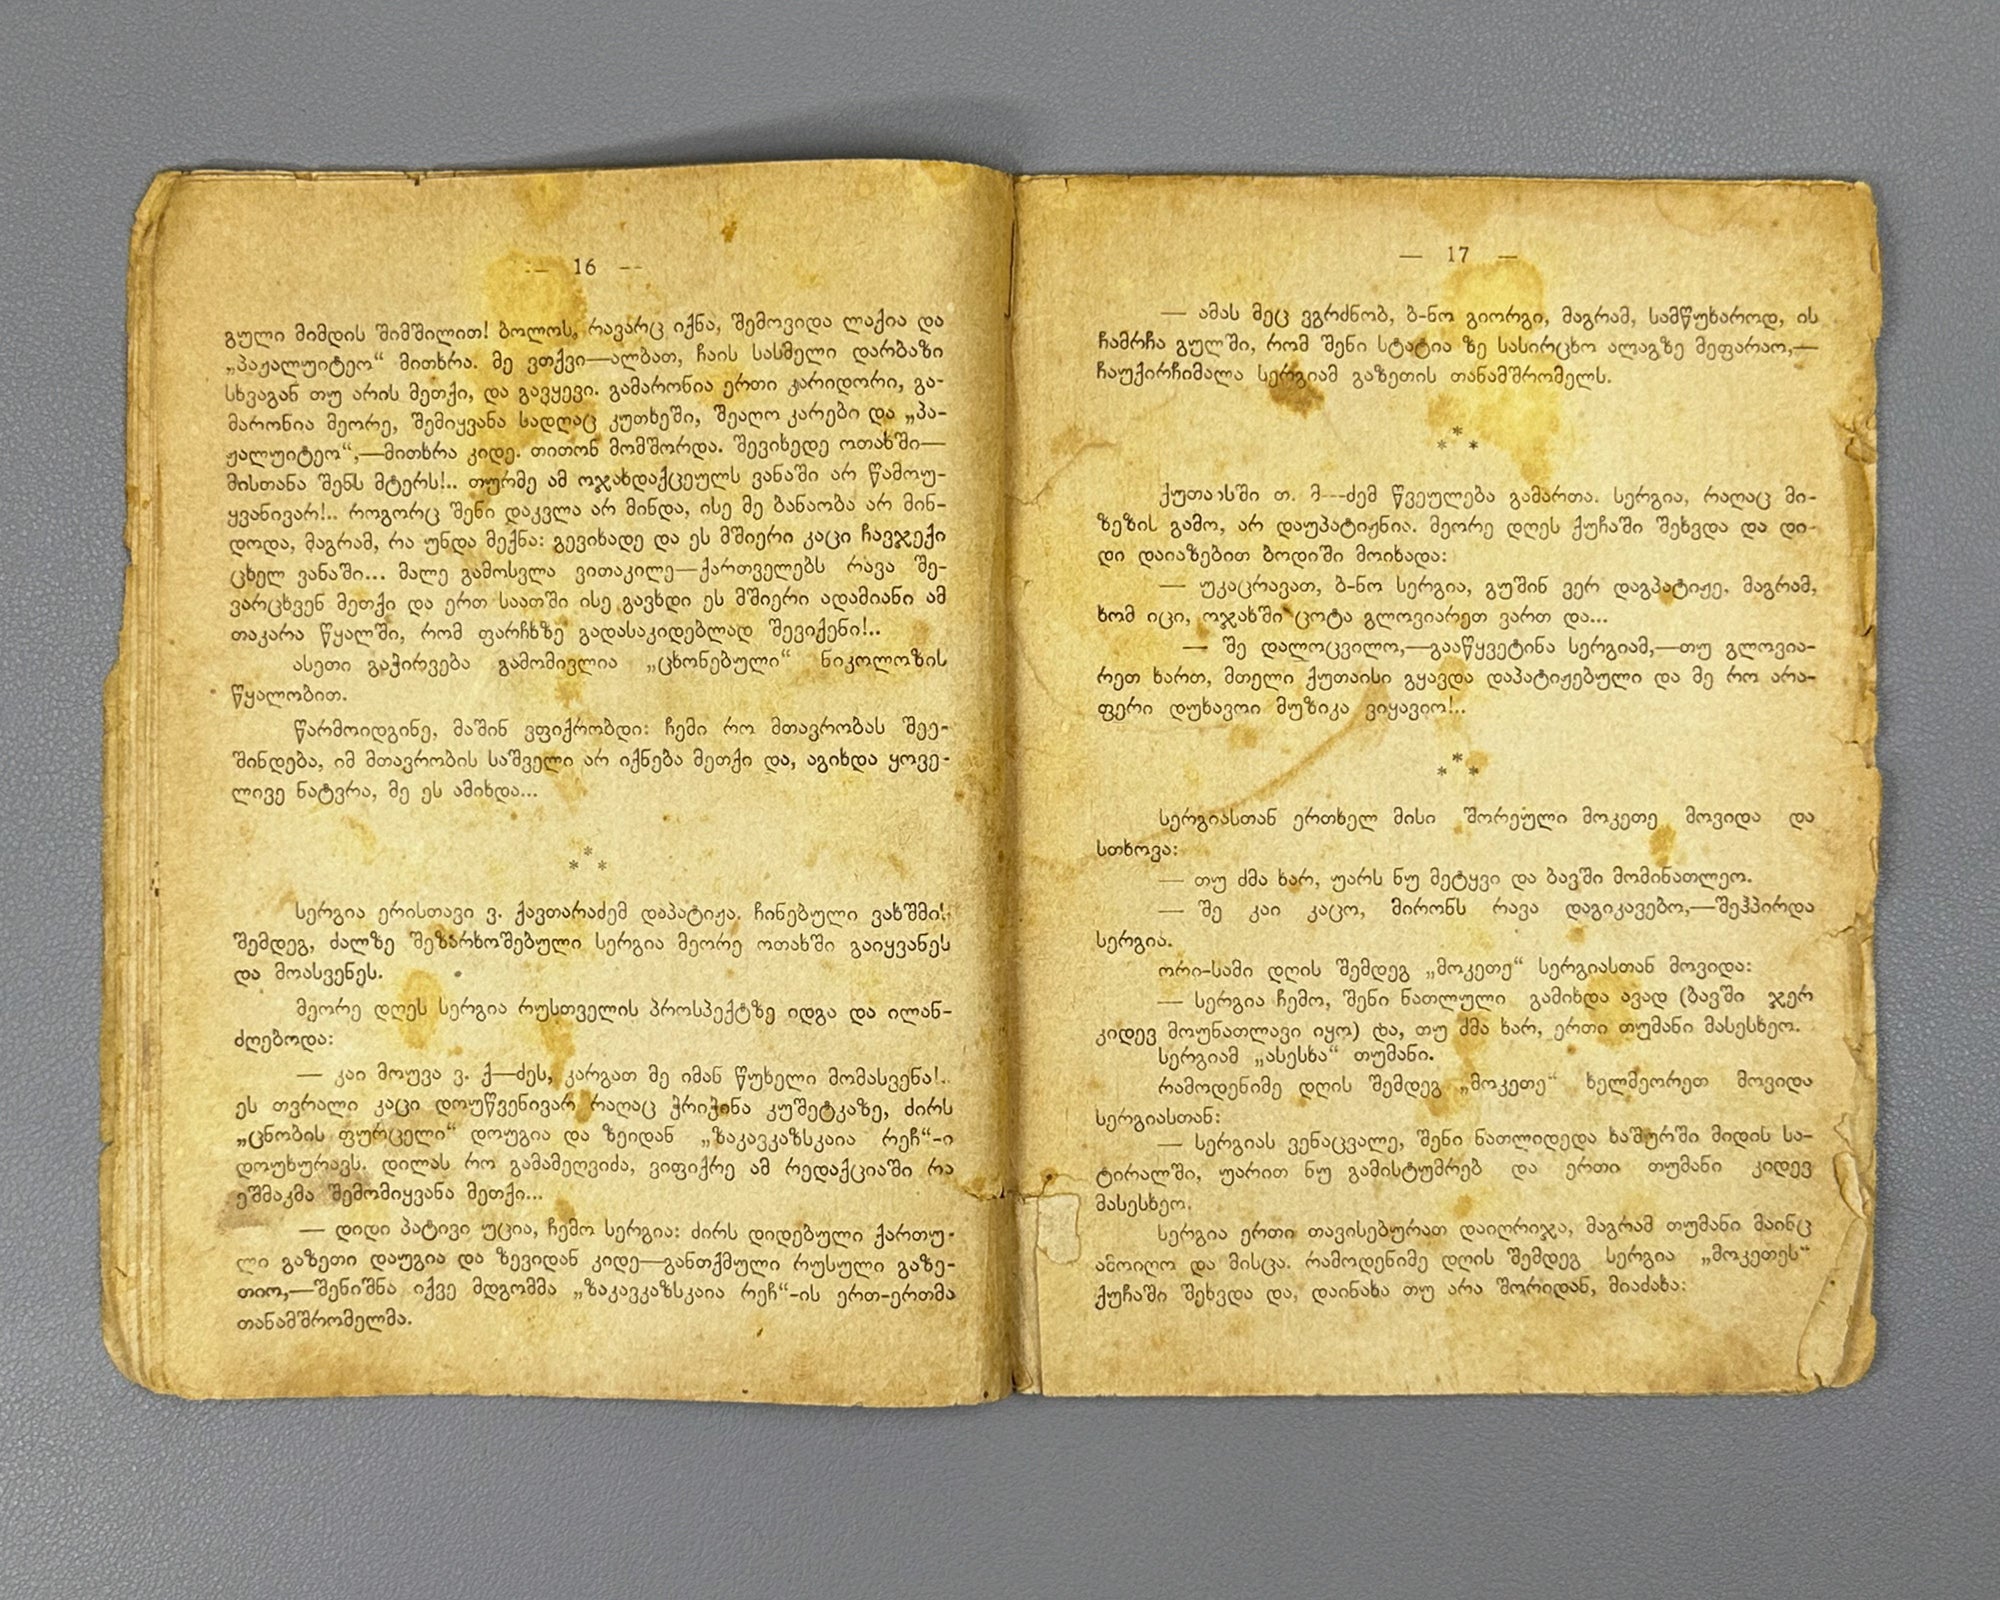 — 16 —
გული მიმდის შიმშილით! ბოლოს, რავარც იქნა, შემოვიდა ლაქია და
„პაჟალუიტეო“ მითხრა. მე ვთქვი—ალბათ, ჩაის სასმელი დარბაზი
სხვაგან თუ არის მეთქი, და გავყევი. გამარონია ერთი კარიდორი, გა-
მარონია მეორე, შემიყვანა სადღაც კუთხეში, შეაღო კარები და „პა-
ჟალუიტეო“,—მითხრა კიდე. თითონ მომშორდა. შევიხედე ოთახში—
მისთანა შენს მტერს!.. თურმე ამ ოჯახდაქცეულს ვანაში არ წამოუ-
ყვანივარ!.. როგორც შენი დაკვლა არ მინდა, ისე მე ბანაობა არ მინ-
დოდა, მაგრამ, რა უნდა მექნა: გევიხადე და ეს მშიერი კაცი ჩავჯექი
ცხელ ვანაში... მალე გამოსვლა ვითაკილე—ქართველებს რავა შე-
ვარცხვენ მეთქი და ერთ საათში ისე გავხდი ეს მშიერი ადამიანი ამ
თაკარა წყალში, რომ ფარჩხზე გადასაკიდებლად შევიქენი!..
ასეთი გაჭირვება გამომივლია „ცხონებული“ ნიკოლოზის
წყალობით.
წარმოიდგინე, მაშინ ვფიქრობდი: ჩემი რო მთავრობას შეე-
შინდება, იმ მთავრობის საშველი არ იქნება მეთქი და, აგიხდა ყოვე-
ლივე ნატვრა, მე ეს ამიხდა...
* * *
სერგია ერისთავი ვ. ქავთარაძემ დაპატიჟა. ჩინებული ვახშმის
შემდეგ, ძალზე შეზარხოშებული სერგია მეორე ოთახში გაიყვანეს
და მოასვენეს.
მეორე დღეს სერგია რუსთველის პროსპექტზე იდგა და ილან-
ძღებოდა:
— კაი მოუვა ვ. ქ—ძეს, კარგათ მე იმან წუხელი მომასვენა!..
ეს თვრალი კაცი დოუწვენივარ რაღაც ჭრიჭინა კუშეტკაზე, ძირს
„ცნობის ფურცელი“ დოუგია და ზეიდან „ზაკავკაზსკაია რეჩ“-ი
დოუხურავს. დილას რო გამამეღვიძა, ვიფიქრე ამ რედაქციაში რა
ეშმაკმა შემომიყვანა მეთქი...
— დიდი პატივი უცია, ჩემო სერგია: ძირს დიდებული ქართუ-
ლი გაზეთი დაუგია და ზევიდან კიდე—განთქმული რუსული გაზე-
თიო,—შენიშნა იქვე მდგომმა „ზაკავკაზსკაია რეჩ“-ის ერთ-ერთმა
თანამშრომელმა.
— 17 —
— ამას მეც ვგრძნობ, ბ-ნო გიორგი, მაგრამ, სამწუხაროდ, ის
ჩამრჩა გულში, რომ შენი სტატია ზე სასირცხო ალაგზე მეფარაო,—
ჩაუქირჩიმალა სერგიამ გაზეთის თანამშრომელს.
* * *
ქუთაისში თ. მ—ძემ წვეულება გამართა. სერგია, რაღაც მი-
ზეზის გამო, არ დაუპატიჟნია. მეორე დღეს ქუჩაში შეხვდა და დი-
დი დაიაზებით ბოდიში მოიხადა:
— უკაცრავათ, ბ-ნო სერგია, გუშინ ვერ დაგპატიჟე, მაგრამ,
ხომ იცი, ოჯახში ცოტა გლოვიარეთ ვართ და...
— შე დალოცვილო,—გააწყვეტინა სერგიამ,—თუ გლოვია-
რეთ ხართ, მთელი ქუთაისი გყავდა დაპატიჟებული და მე რო არა-
ფერი დუხავოი მუზიკა ვიყავიო!..
* * *
სერგიასთან ერთხელ მისი შორეული მოკეთე მოვიდა და
სთხოვა:
— თუ ძმა ხარ, უარს ნუ მეტყვი და ბავში მომინათლეო.
— შე კაი კაცო, მირონს რავა დაგიკავებო,—შეჰპირდა
სერგია.
ორი-სამი დღის შემდეგ „მოკეთე“ სერგიასთან მოვიდა:
— სერგია ჩემო, შენი ნათლული გამიხდა ავად (ბავში ჯერ
კიდევ მოუნათლავი იყო) და, თუ ძმა ხარ, ერთი თუმანი მასესხეო.
სერგიამ „ასესხა“ თუმანი.
რამოდენიმე დღის შემდეგ „მოკეთე“ ხელმეორეთ მოვიდა
სერგიასთან:
— სერგიას ვენაცვალე, შენი ნათლიდედა ხაშურში მიდის სა-
ტირალში, უარით ნუ გამისტუმრებ და ერთი თუმანი კიდევ
მასესხეო.
სერგია ერთი თავისებურათ დაიღრიჯა, მაგრამ თუმანი მაინც
ამოიღო და მისცა. რამოდენიმე დღის შემდეგ სერგია „მოკეთეს“
ქუჩაში შეხვდა და, დაინახა თუ არა შორიდან, მიაძახა: